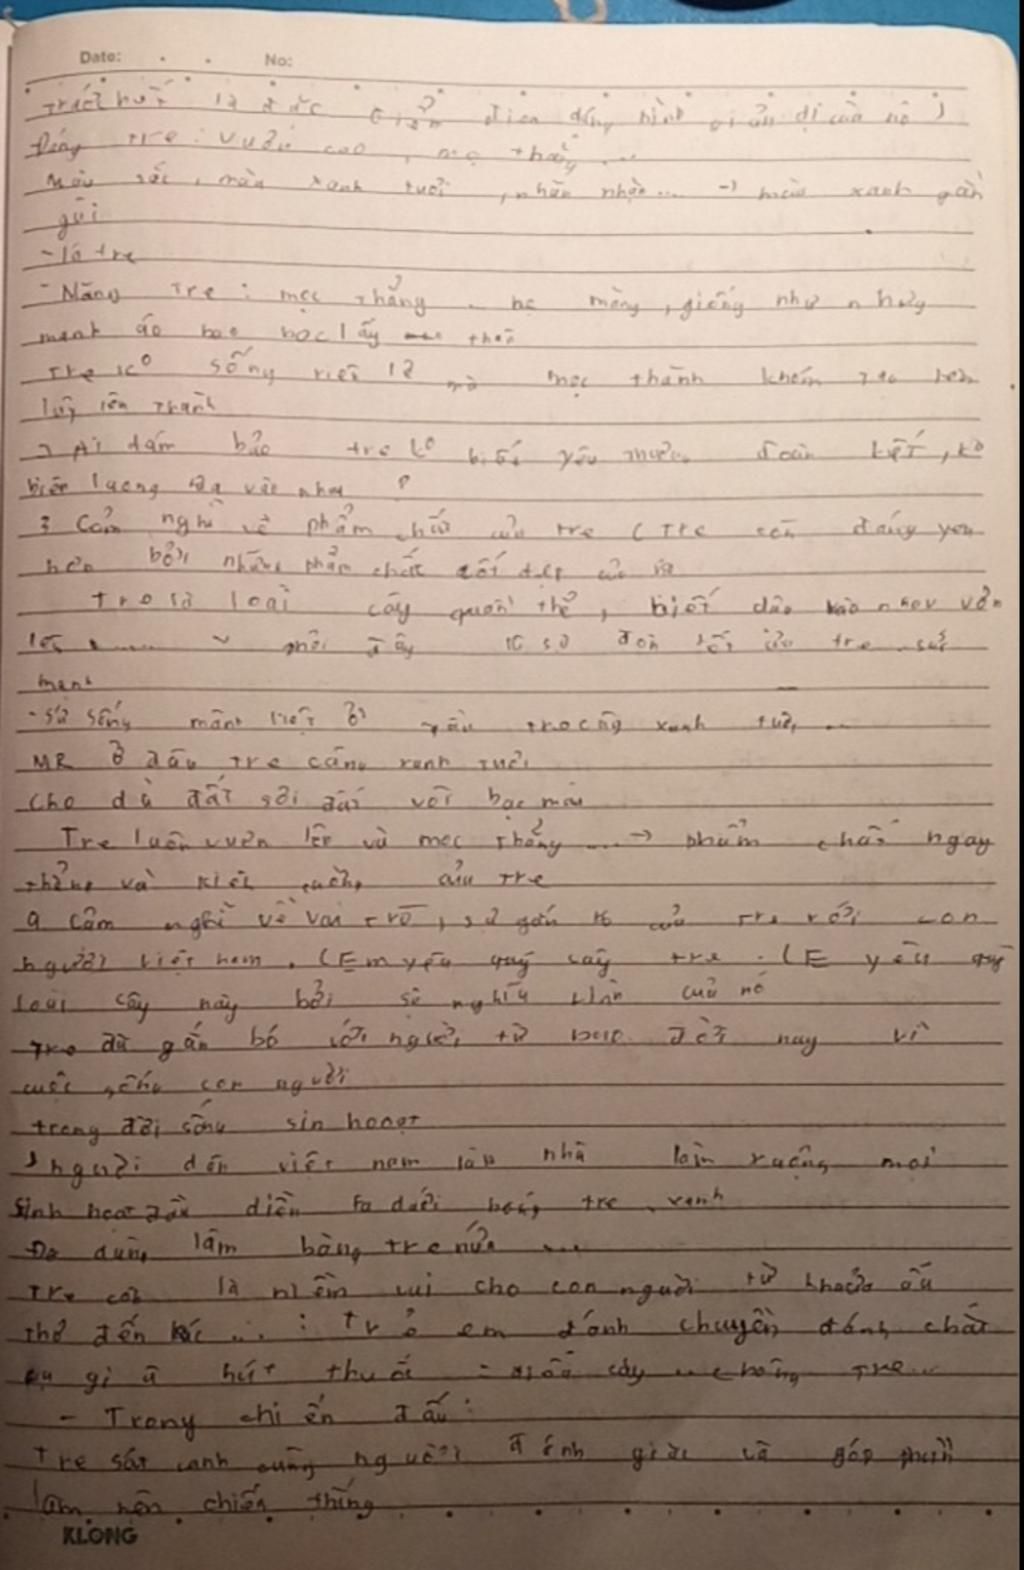 Date: . . No:
trước hết là đặc điểm dáng hình giản dị của nó )
Dáng tre : vươn cao , mọc thẳng ...
Màu sắc , màu xanh tươi , nhàn nhạt... -> màu xanh gần
gũi
- lá tre
- Măng tre : mọc thẳng .. măng , giống như những
manh áo bao bọc lấy thân
tre ko sống riêng lẻ mà mọc thành khóm tạo nên
luỹ lên thành
Ai dám bảo tre ko biết yêu thương đoàn kết , ko
biết nhau ?
3 Cảm nghĩ về phẩm chất của tre ( Tre còn đáng yêu
hơn bởi những phẩm chất tốt đẹp của
tre là loài cây quần thể , biết dựa vào nhau vươn
lên ...... phải đấy sự đoàn kết của tre sức
mạnh
- sự sống mãnh liệt ở màu tre cũng xanh tươi ...
MR Ở đâu tre cũng xanh tươi
Cho dù đất sỏi đất vôi bạc màu
Tre luôn vươn lên và mọc thẳng ... -> phẩm chất ngay
thẳng và kiên cường của tre
4 Cảm nghĩ về vai trò , sự gắn bó của tre với con
người việt nam . (Em yêu quý cây tre . (E yêu quý
loài cây này bởi sự nghĩa tình của nó
Tre đã gắn bó với người từ bao đời nay vì
cuộc sống con người
trong đời sống sin hoạt
người dân việt nam làm nhà làm ruộng mọi
sinh hoạt đều diễn ra dưới bóng tre xanh
Đồ dùng làm bằng tre nứa ...
Tre còn là niềm vui cho con người từ khoảng ấu
thơ đến lúc ... : trẻ em đánh chuyền đánh chắt
cụ già hút thuốc = điếu cày .. chõng tre ..
- Trong chi ến đấu :
tre sát cánh cùng người đánh giặc và góp phần
làm nên chiến thắng
KLONG